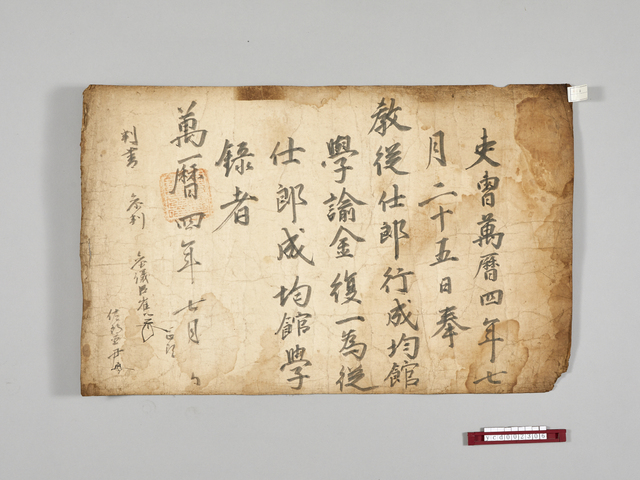 吏曺萬曆四年七
月二十五日奉
敎從仕郎行成均館
學諭金復一為從
仕郎成均館學
錄者
萬曆四年七月 日
判書 參判 參議臣崔